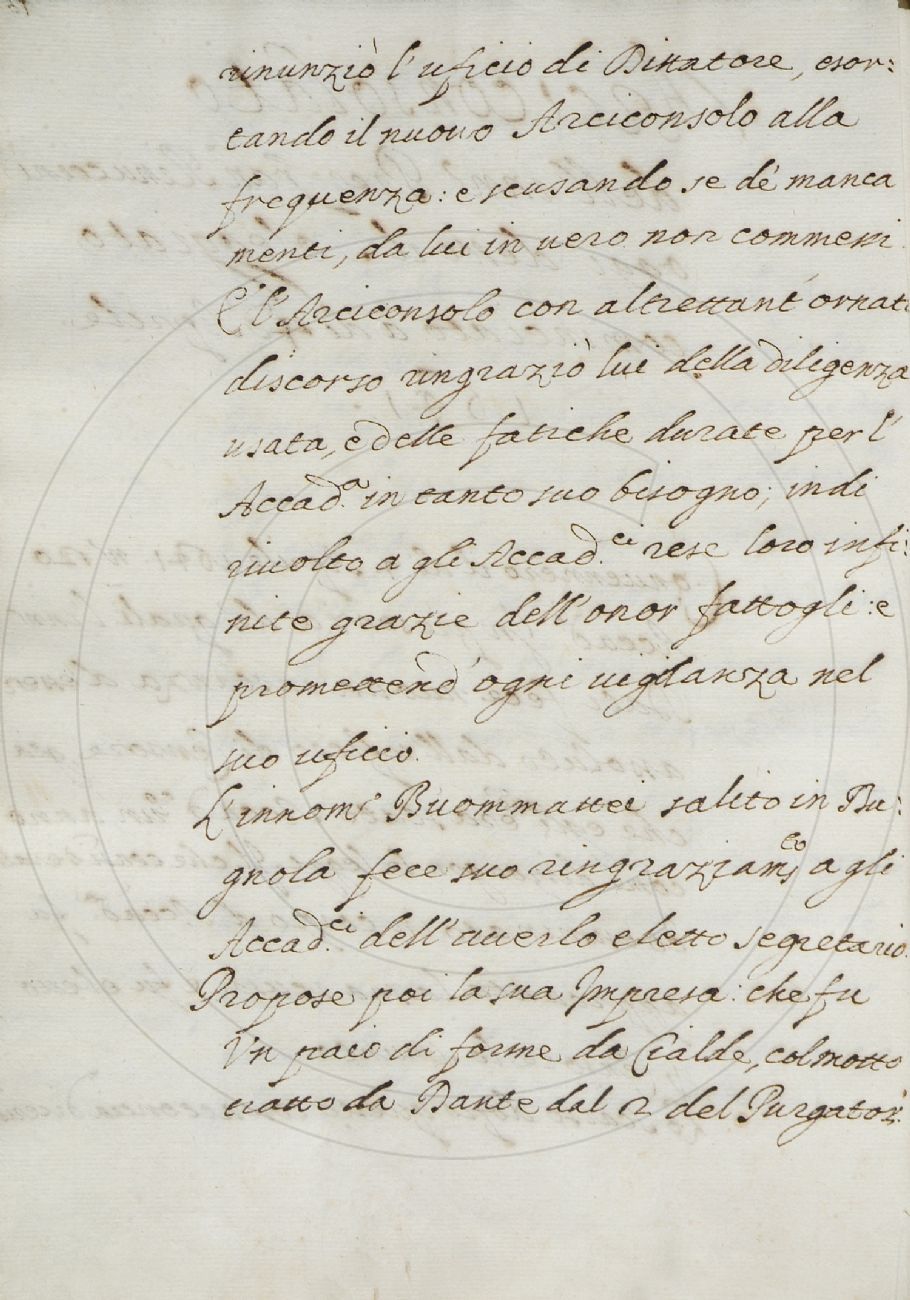 rinunziò l'uficio di Dittatore, esor:
tando il nuovo Arciconsolo alla
frequenza: e scusando se de' manca
menti, da lui in vero non commessi.
E l'Arciconsolo con altrettant' ornat
discorso ringraziò lui della diligenza
usata, e delle fatiche durate per l'
Accad.a in tanto suo bisogno; indi
rivolto a gli Accad.ci rese loro infi:
nite grazie dell'onor fattogli: e
promettend' ogni vigilanza nel
suo uficio.
L'innom.o Buommattei salito in Bu:
gnola fece suo ringraziam.to a gli
Accad.ci dell'averlo eletto segretario.
Propose poi la sua Impresa: che fu
Un paio di forme da Cialde, col motto
tratto da Dante dal 2 del Purgator.